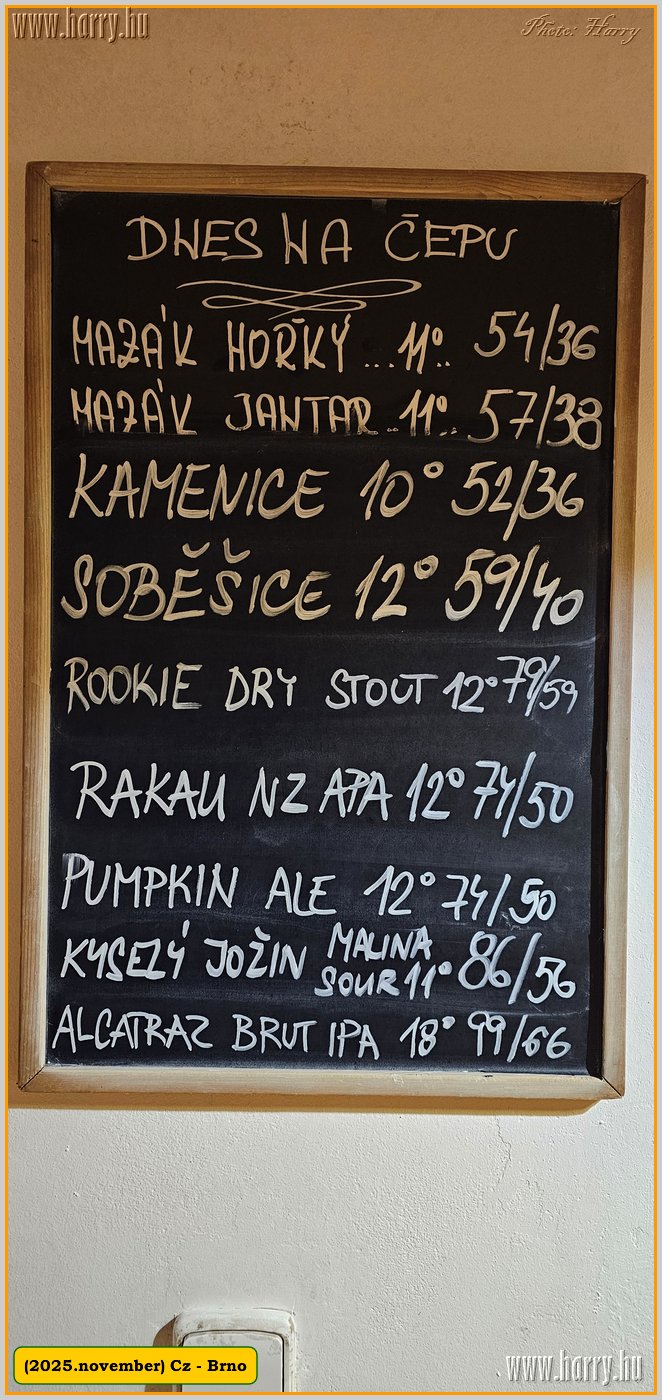 www.harry.hu
Photo: Harry
DNES NA ČEPU
MAZÁK HOŘKÝ ... 11°.. 54/36
MAZÁK JANTAR .. 11°.. 57/38
KAMENICE 10° 52/36
SOBĚŠICE 12° 59/40
ROOKIE DRY STOUT 12° 79/59
RAKAU NZ APA 12° 74/50
PUMPKIN ALE 12° 74/50
KYSELÝ JOŽIN MALINA SOUR 11° 86/56
ALCATRAZ BRUT IPA 18° 99/66
(2025.november) Cz - Brno
www.harry.hu